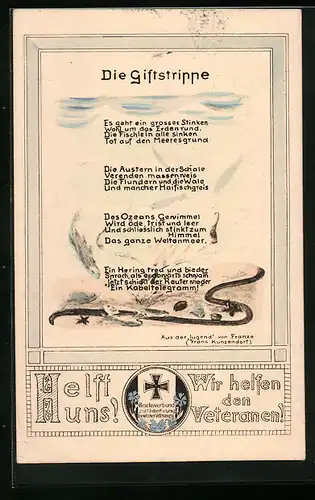 Die Giftstrippe
Es geht ein grosses Stinken
Wohl um das Erdenrund.
Die Fischlein alle sinken
Tot auf den Meeresgrund
Die Austern in der Schale
Verenden massenweis
Die Flundern und die Wale
Und mancher Haifischgreis
Des Ozeans Gewimmel
Wird öde, trist und leer
Und schliesslich stinkt zum
Himmel
Das ganze Weltenmeer.
Ein Hering treu und bieder
Sprach, als er aufwärts schwamm
Jetzt schickt der Reuter wieder
Ein Kabeltelegramm!
Aus der "Jugend" von Franze
(Franz Kunzendorf)
Helft
uns!
Wir helfen
den
Veteranen!